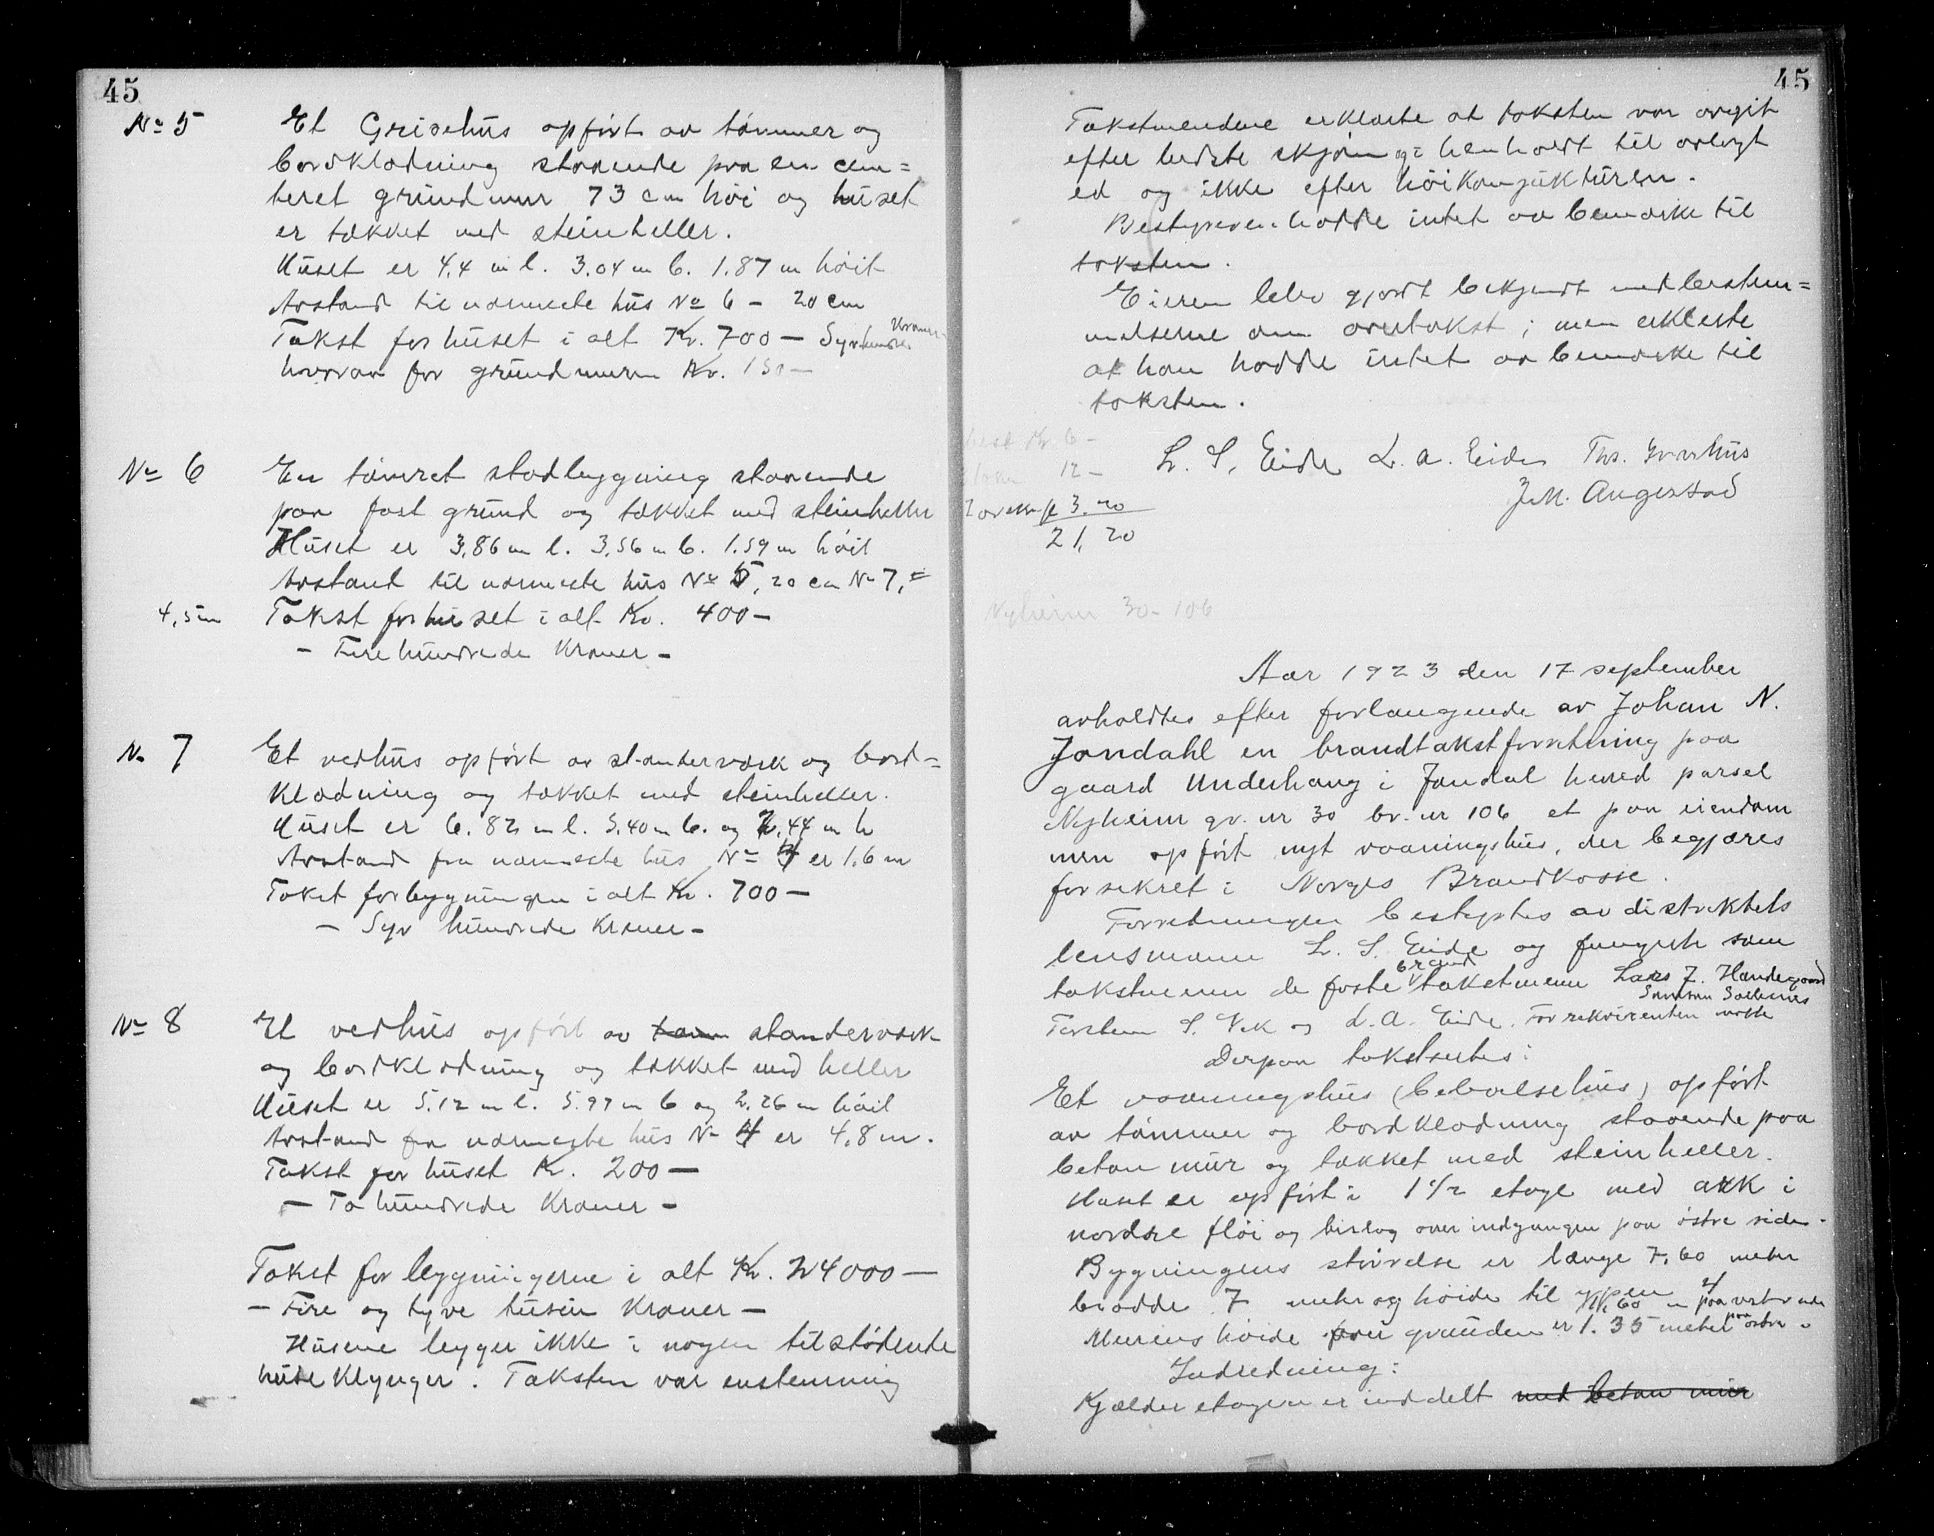 45
No 5 Et Grisehus opført av tømmer og
bordklædning staaende paa en cem=
teret grundmur 73 cm høi og huset
er tækket med steinheller.
Huset er 4,4 m l. 3,04 m b. 1.87 m høit
Avstand til nærmeste hus No 6 - 20 cm
Takst for huset i alt Kr. 700 - Syvhundrede Kroner
hvorav for grundmuren Kr. 150 -
No 6 En tømret stadbygning staaende
paa fast grund og tækket med steinheller
Huset er 3,86 m l. 3,56 m b. 1.59 m høit
Avstand til nærmeste hus No 5, 20 cm No 7, =
4,5 m Takst for huset i alt Kr. 400 -
- Fire hundrede Kroner -
No 7 Et vedhus opført av standerværk og bord=
klædning og tækket med steinheller.
Huset er 6.82 m l. 5,40 m b. og 2,44 m h
Avstand fra nærmeste hus No 4 er 1.6 m
Takst for bygningen i alt Kr. 700 -
- Syv hundrede Kroner -
No 8 Et vedhus opført av tøm standerværk
og bordklædning og tækket med heller
Huset er 5.12 m l. 5.97 m b og 2,26 m høit
Avstand fra nærmeste hus No 4 er 4,8 m.
Takst for huset Kr. 200 -
- To hundrede Kroner -
Takst for bygningerne i alt Kr. 24000 -
- Fire og tyve tusin Kroner -
Husene ligger ikke i nogen tilstødende
husklynger. Taksten var enstemmig
45
Takstmendene erklærte at taksten var avgit
efter bedste skjøn og i henhold til avlagt
ed og ikke efter høikonjukturen.
Bestyreren hadde intet aa bemærke til
taksten.
Eieren blev gjordt bekjendt med bestem=
melserne om overtakst; men erklærte
at han hadde intet aa bemærke til
taksten.
L. S. Eide L. A. Eide Ths. Gravhus
J. M. Augestad
Kr. 6 -
12 -
3.20
21,20
Nyheim 30 - 106
Aar 1923 den 17 september
avholdtes efter forlangende av Johan N.
Jondahl en brandtakstforretning paa
gaard Underhaug i Jondal hered parsel
Nyheim gr. nr 30 br. nr 106 et paa eiendom
men opført nyt vaaningshus, der begjæres
forsikret i Norges Brandkasse.
Forretningen bestyrtes av distriktets
lensmann L. S. Eide og fungerte som
takstmenn de faste brand takstmenn Lars J. Handegaard
Samson Solhenes
Torstein S. Vik og L. A. Eide. For rekvirenten møtte
Derpaa takstertes:
Et vaaningshus (beboelsehus) opført
av tømmer og bordklædning staaende paa
beton mur og tækket med steinheller.
Huset er opført i 1 1/2 etage med ark i
nordre fløi og bislag over indgangen paa østre side.
Bygningens størrelse er længe 7,60 meter
bredde 7 meter og høide til gesimsen 4,60 m paa vestre side
Murens høide over grunden er 1.35 meter paa østre =
Indredning:
Kjælder etagen er inddelt med beton mur